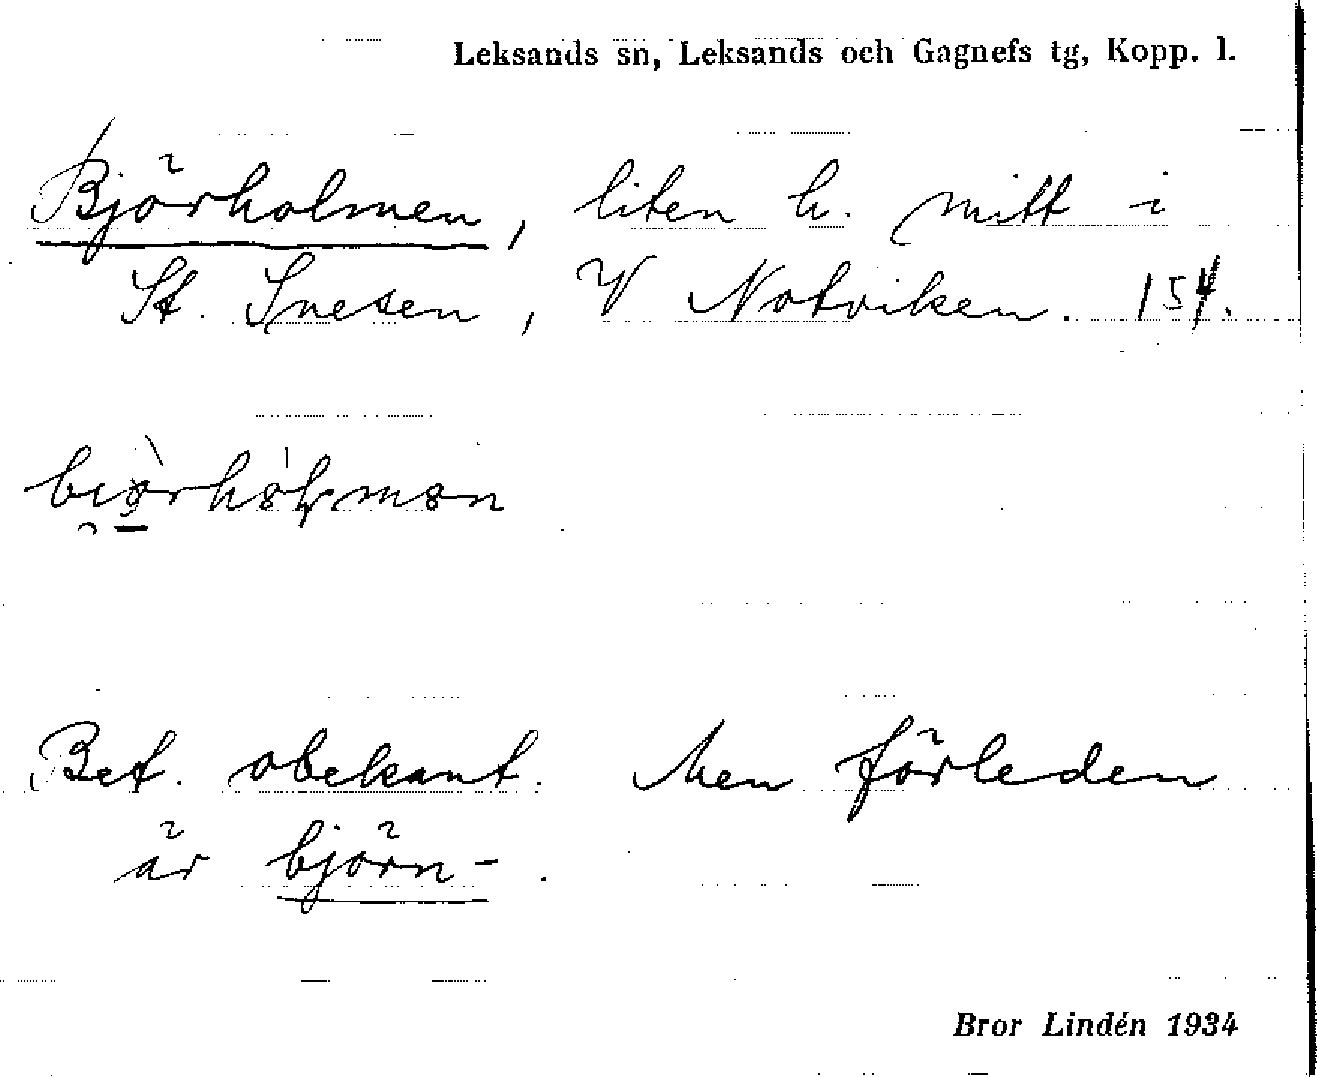 Leksands sn, Leksands och Gagnefs tg, Kopp. l.
Björholmen, liten h. mitt i
St. Snesen, V Notviken. 154.
Bet. obekant. Men förleden
är björn-.
Bror Lindén 1934